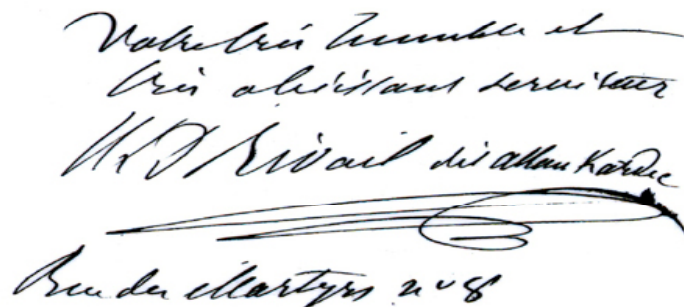 Votre très humble et
très obéissant serviteur
H L D Rivail dit Allan Kardec
Rue des Martyrs n° 8